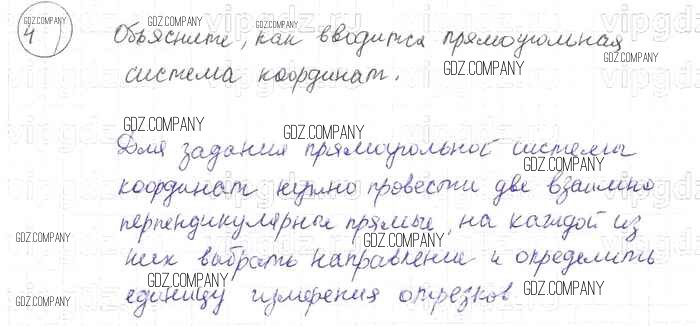 4
Объясните, как вводится прямоугольная
система координат.
Для задания прямоугольной системы
координат нужно провести две взаимно
перпендикулярные прямые, на каждой из
них выбрать направление и определить
единицу измерения отрезков
GDZ.COMPANY
GDZ.COMPANY
GDZ.COMPANY
GDZ.COMPANY
GDZ.COMPANY
GDZ.COMPANY
GDZ.COMPANY
GDZ.COMPANY
GDZ.COMPANY
GDZ.COMPANY
GDZ.COMPANY
GDZ.COMPANY